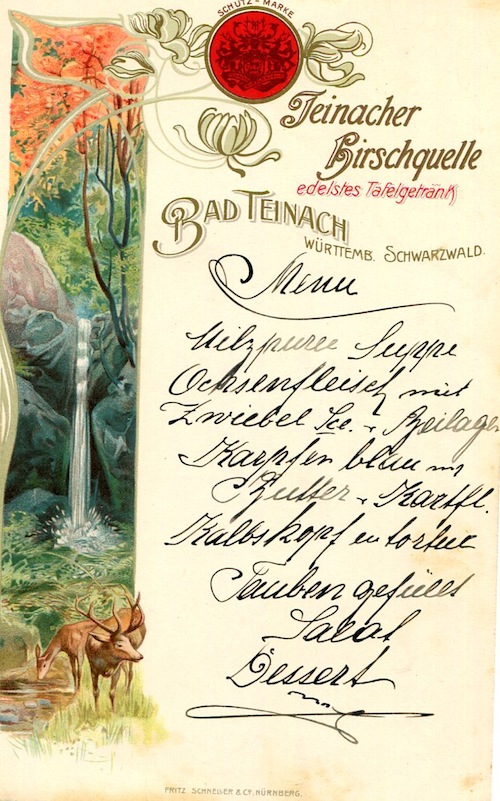 SCHUTZ-MARKE
Teinacher
Hirschquelle
edelstes Tafelgetränk
BAD TEINACH
WÜRTTEMB. SCHWARZWALD.
Menu
Milzpuree Suppe
Ochsenfleisch mit
Zwiebel Sce. u Beilagen
Karpfen blau m
Butter u Kartfl.
Kalbskopf en tortue
Tauben gefüllt
Salat
Dessert
FRITZ SCHNELLER & Co. NÜRNBERG.